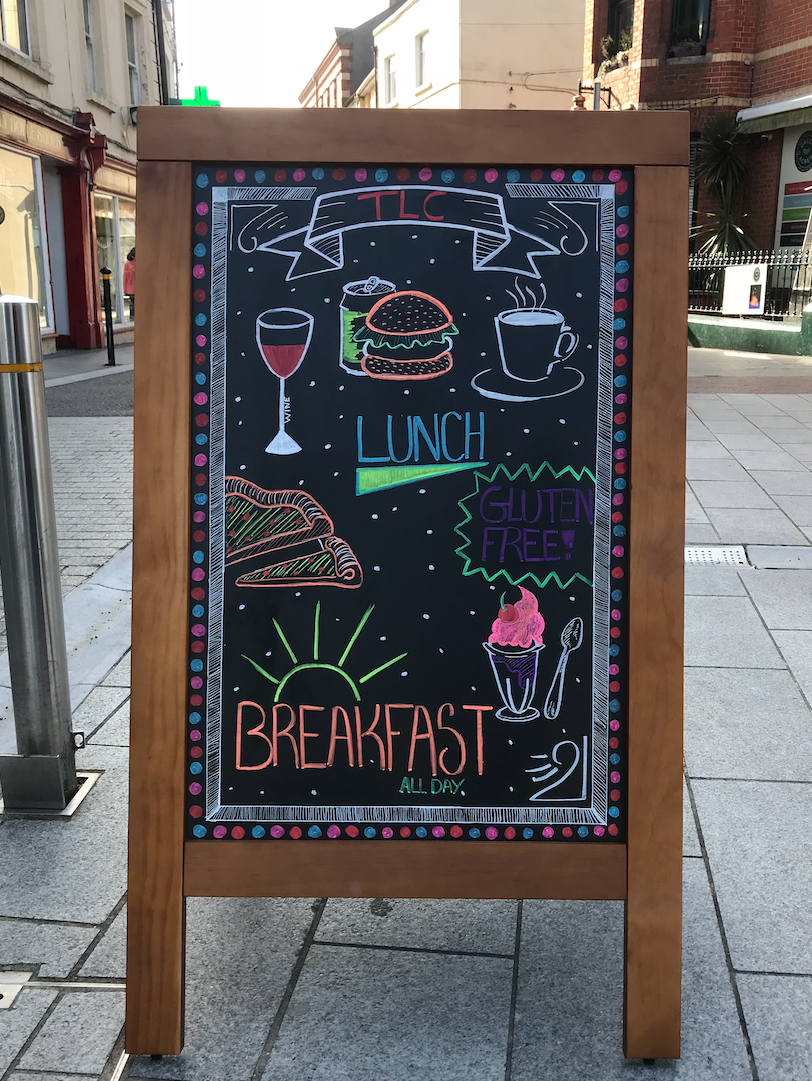 TLC
WINE
LUNCH
GLUTEN
FREE!
BREAKFAST
ALL DAY